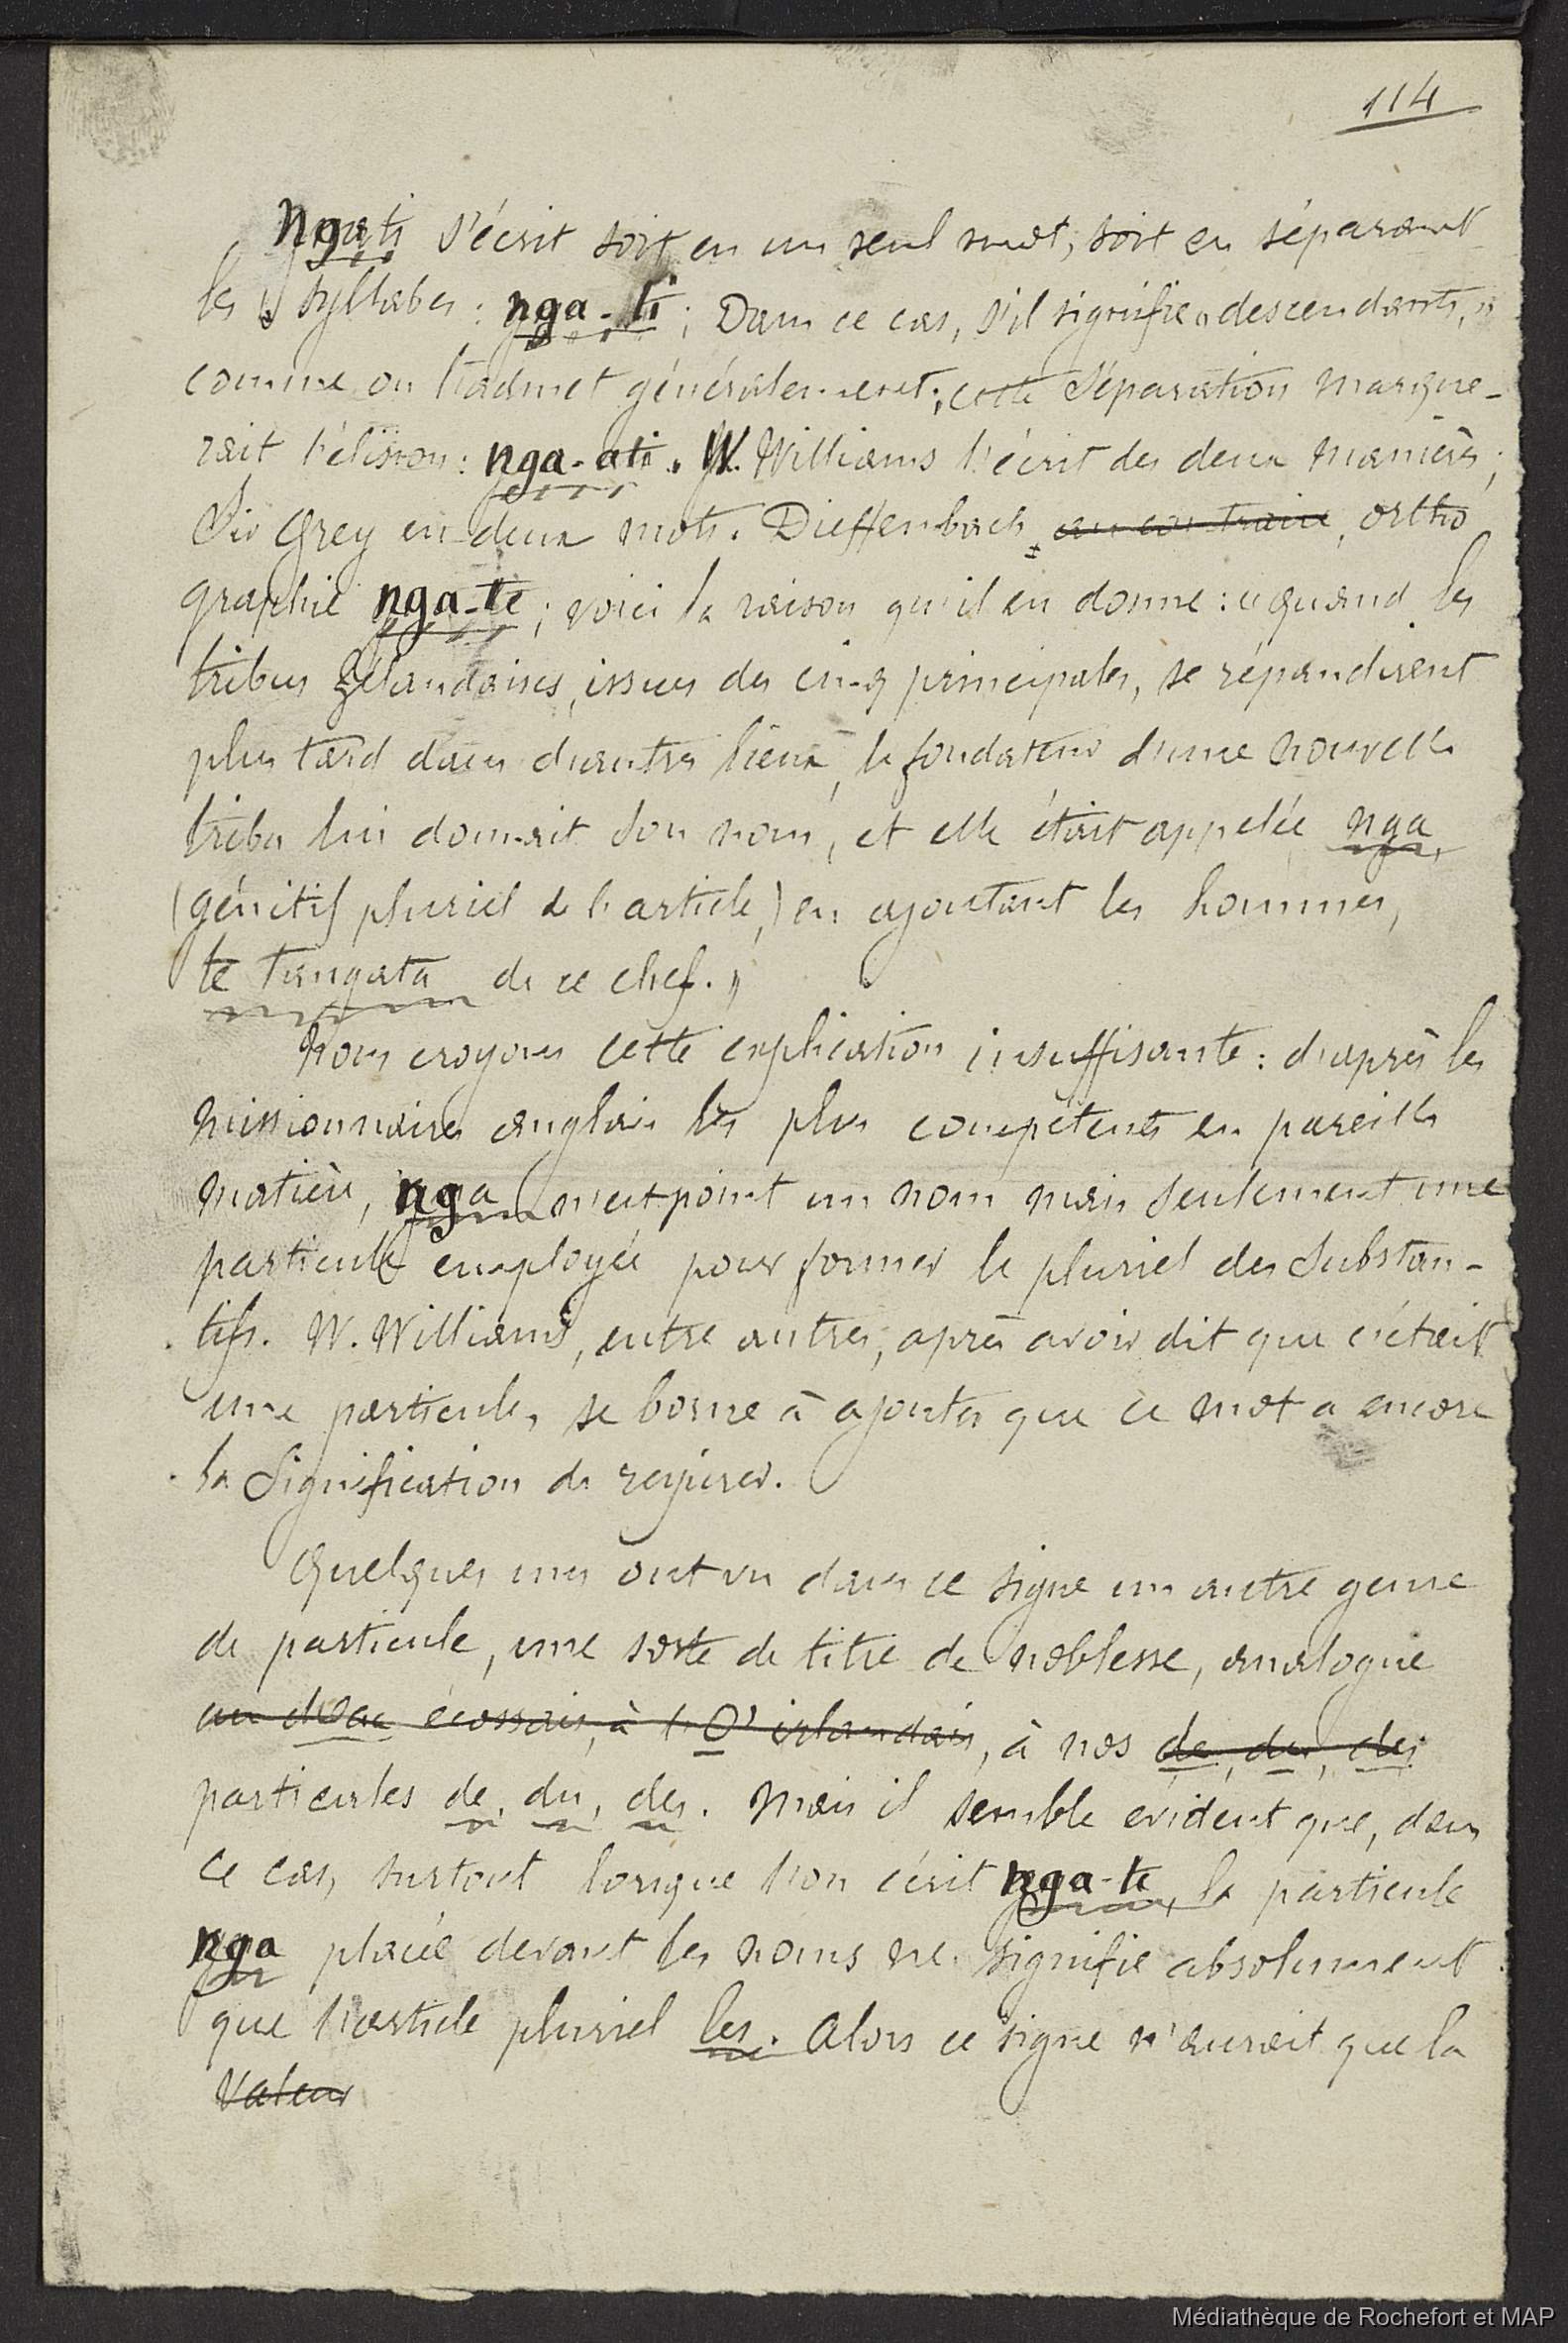 114
Ngati s'écrit soit en un seul mot, soit en séparant
les syllabes : nga-ti ; Dans ce cas, s'il signifie « descendants, »
comme on l'admet généralement, cette séparation marque-
rait l'élision : nga-ati. W. Williams l'écrit des deux manières ;
Sir Grey en deux mots. Dieffenbach, au contraire, ortho
graphie nga-te ; voici la raison qu'il en donne : « quand les
tribus Zélandaises, issues des cinq principales, se répandirent
plus tard dans d'autres lieux, le fondateur d'une nouvelle
tribu lui donnait son nom, et elle était appelée nga,
(génitif pluriel de l'article,) en ajoutant les hommes,
te tangata de ce chef. »
Nous croyons cette explication insuffisante : d'après les
missionnaires anglais les plus compétents en pareille
matière, nga n'est point un nom mais seulement une
particule employée pour former le pluriel des substan-
tifs. W. Williams, entre autres, après avoir dit que c'était
une particule, se borne à ajouter que ce mot a encore
la signification de respirer.
Quelques uns ont vu dans ce signe un autre genre
de particule, une sorte de titre de noblesse, analogue
au Mac écossais, à l'O' irlandais, à nos de, du, des
particules de, du, des. Mais il semble évident que, dans
ce cas, surtout lorsque l'on écrit nga-te, la particule
nga placée devant les noms ne signifie absolument
que l'article pluriel les. Alors ce signe n'aurait que la
valeur
Médiathèque de Rochefort et MAP